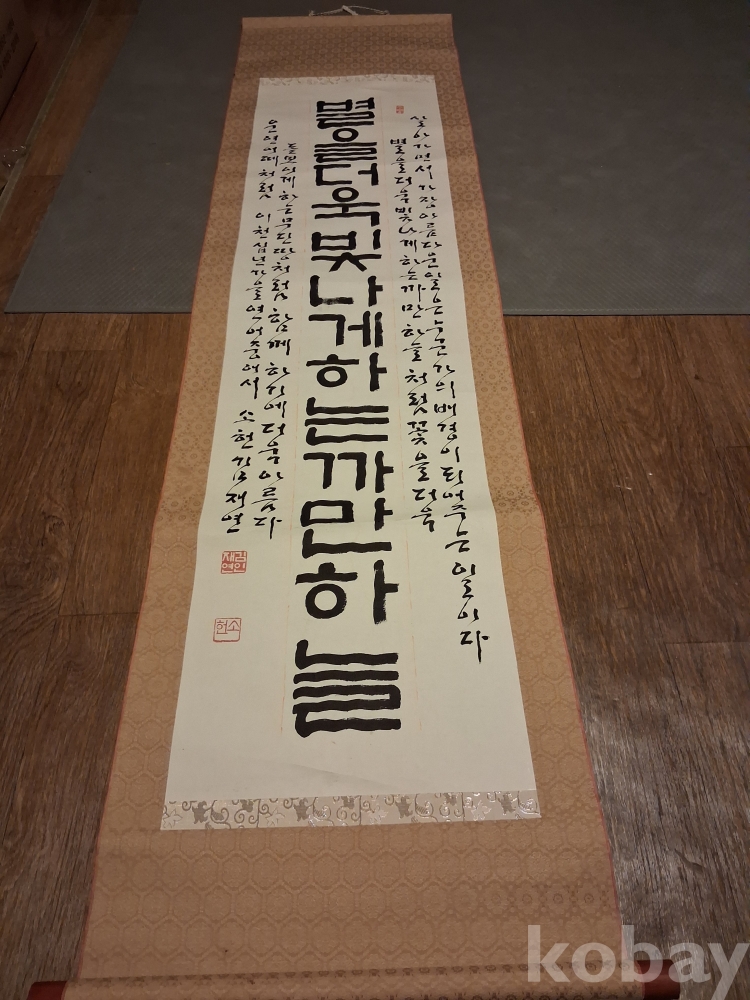 살아가면서가장아름다운일은누군가의배경이되어주는일이다
별을더욱빛나게하는까만하늘처럼꽃을더욱
별을더욱빛나게하는까만하늘
돋보이게하는무딘땅처럼함께하기에더욱아름다
운연어떼처럼 이천십년가을연어중에서 소헌김재연
김인재연
소헌
kobay